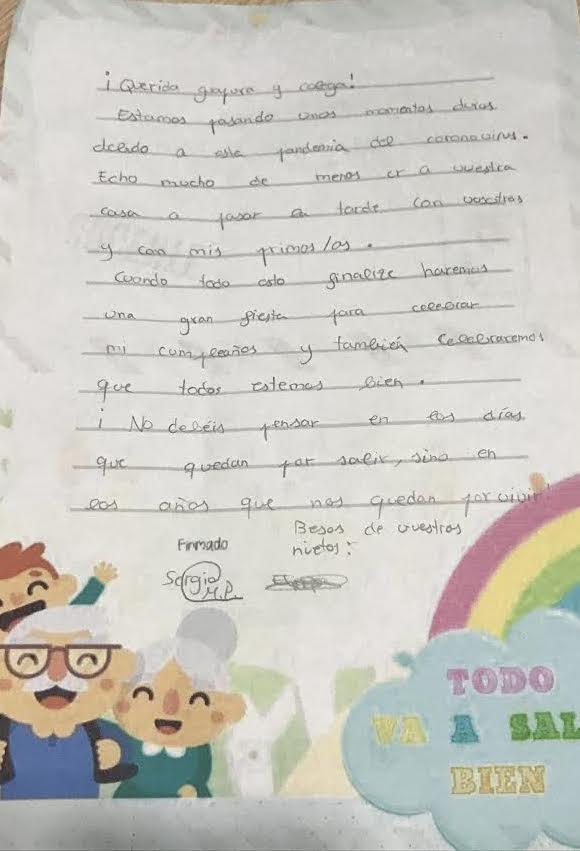 ¡Querida y
Estamos pasando unos momentos duros
a esta pandemia del coronavirus.
Echo mucho de menos ir a vuestra
casa a pasar la tarde con vosotros
y con mis primos/as.
Cuando todo esto finalize haremos
una gran fiesta para celebrar
mi cumpleaños y también celebraremos
que todos estemos bien.
¡No debéis pensar en los días
que quedan por salir, sino en
los años que nos quedan por vivir!
Besos de vuestros
nietos:
Firmado
Sergio
M.P.
TODO
VA A SAL
BIEN